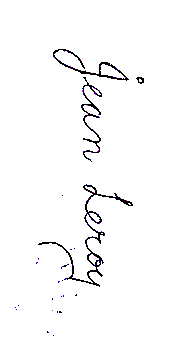 jean Leroy